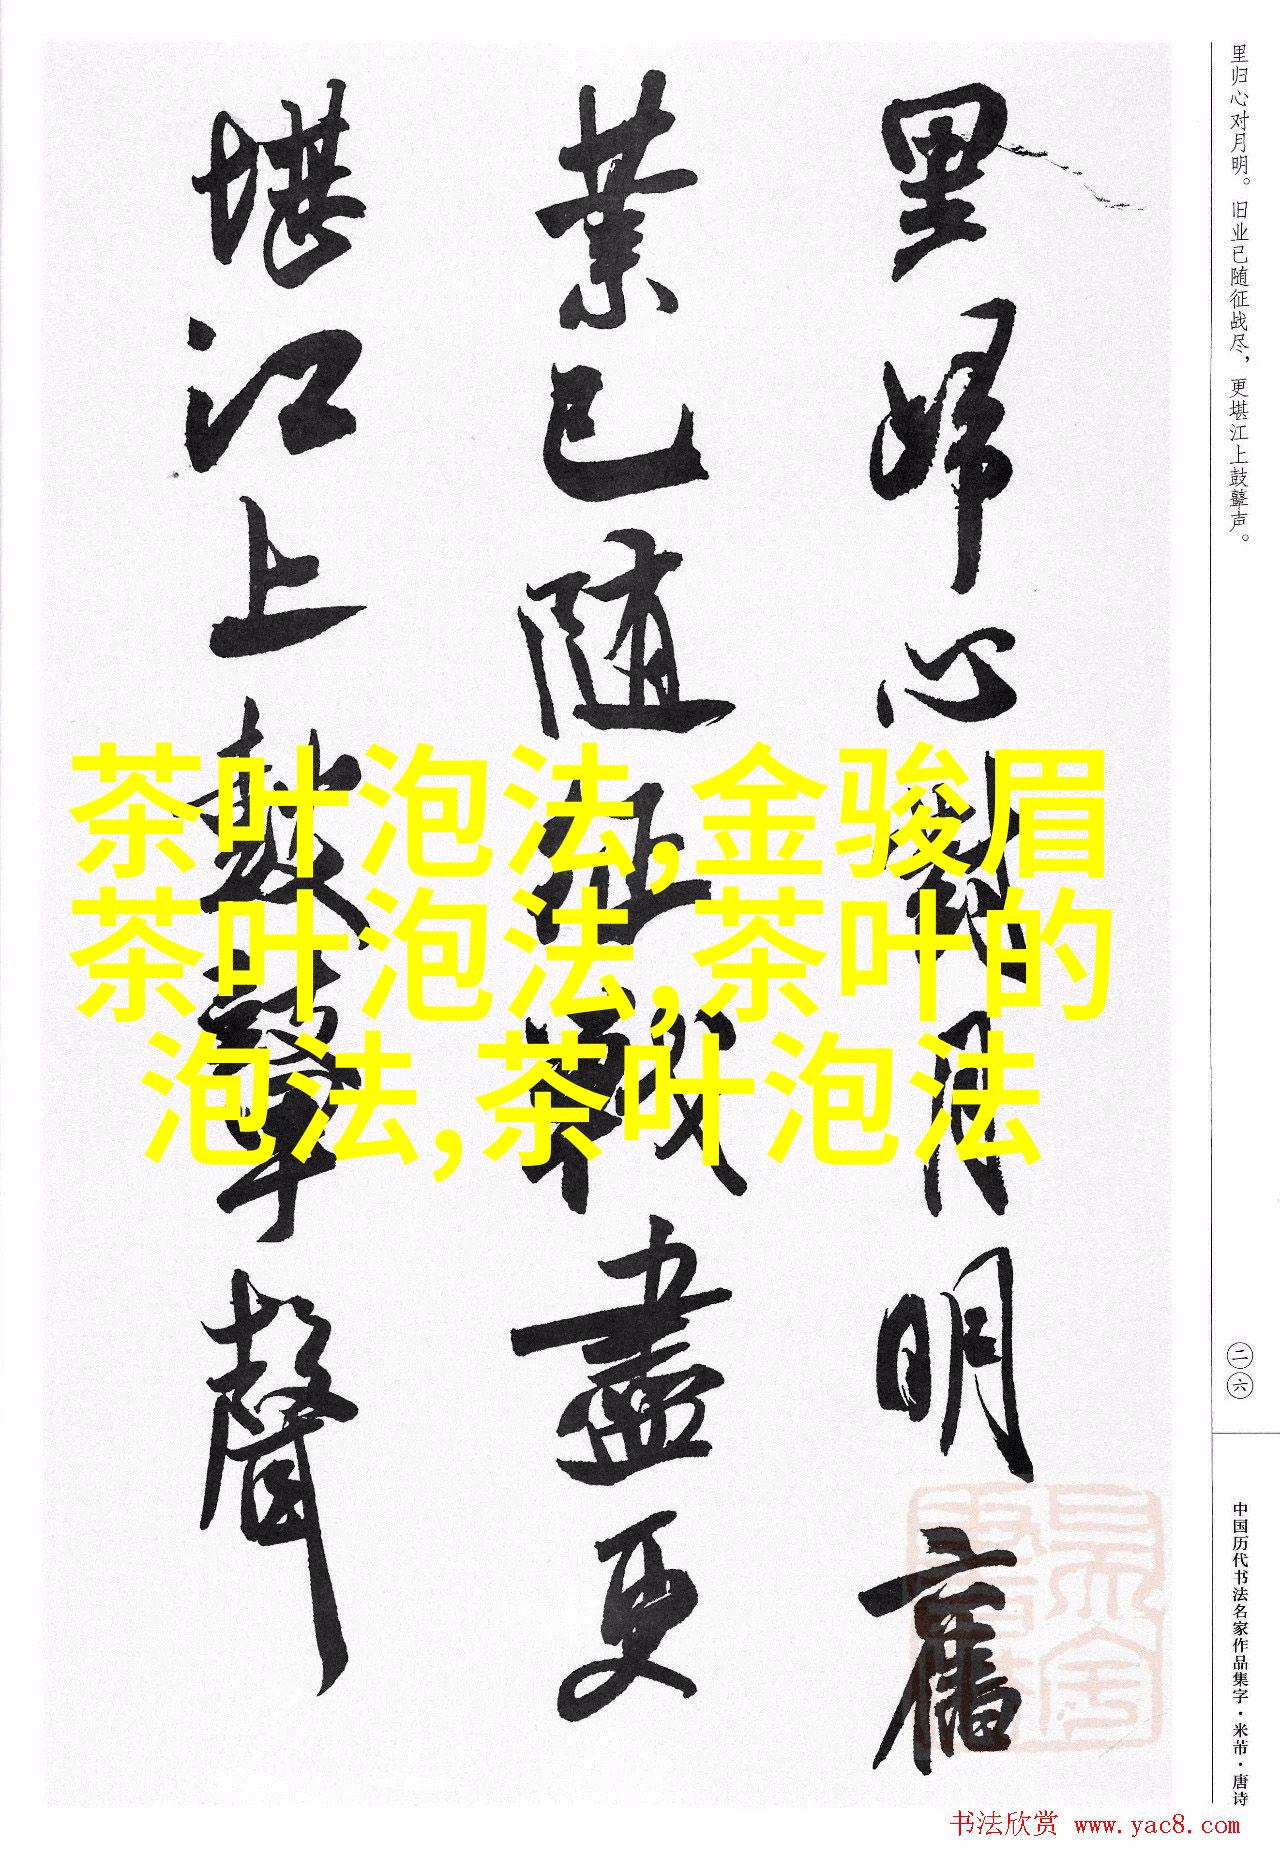 里归心对月明。旧业已随征战尽，更堪江上鼓鼙声。
里歸心對月明舊
業已隨征戰盡更
堪江上鼓鼙聲
茶叶泡法,金骏眉
茶叶泡法,茶叶的
泡法,茶叶泡法
二六
中国历代书法名家作品集字·米芾·唐诗
书法欣赏 www.yac8.com